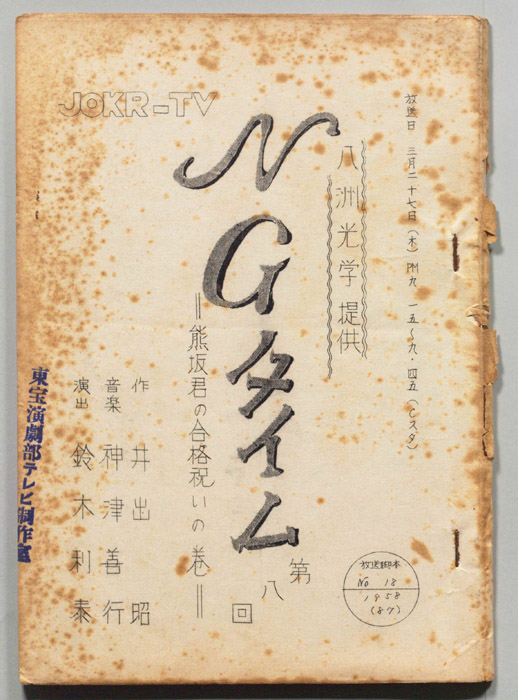 JOKR-TV
放送日 三月二十七日(木) PM九.一五〜九.四五(Cスタ)
八洲光学提供
NGタイム
第八回
=熊坂君の合格祝いの巻=
作 井出 昭
音楽 神津善行
演出 鈴木利泰
東宝演劇部テレビ制作室
放送脚本
No 18
1958
(87)